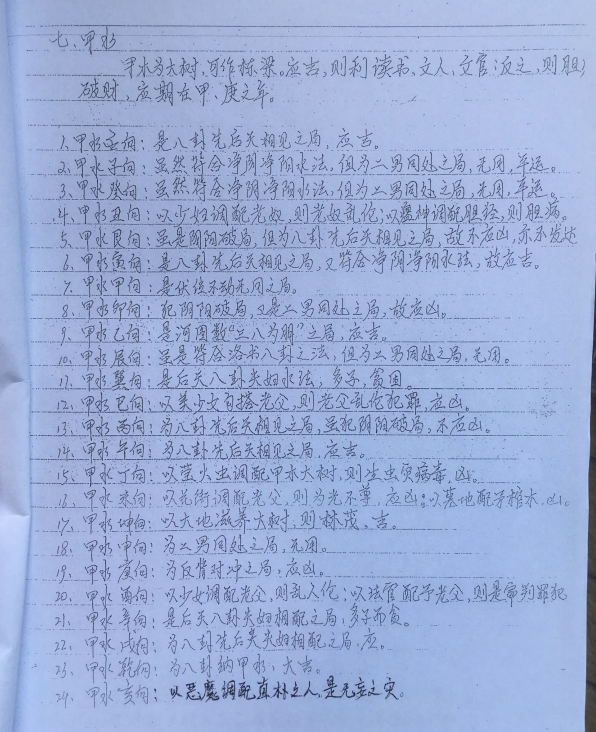 七、甲水
甲水为大树，可作栋梁。应吉，则利读书、文人、文官；反之，则胆
破财，应期在甲、庚之年。
1、甲水壬向：是八卦先后天相见之局，应吉。
2、甲水子向：虽然符合净阴净阳水法，但为二男同处之局，无用，平运。
3、甲水癸向：虽然符合净阴净阳水法，但为二男同处之局，无用，平运。
4、甲水丑向：以少妇调配老奴，则老奴乱伦；以瘟神调配胆经，则胆病。
5、甲水艮向：虽是阴阳破局，但为八卦先后天相见之局，故不应凶，亦不发达
6、甲水寅向：是八卦先后天相见之局，又符合净阴净阳水法，故应吉。
7、甲水甲向：是伏位不动无用之局。
8、甲水卯向：犯阴阳破局，又是二男同处之局，故应凶。
9、甲水乙向：是河图数“三八为朋”之局，应吉。
10、甲水辰向：虽是符合洛书八卦之法，但为二男同处之局，无用。
11、甲水巽向：是后天八卦夫妇水法，多子，贫困。
12、甲水巳向：以美少女勾搭老父，则老父乱伦犯罪，应凶。
13、甲水丙向：为八卦先后天相见之局，虽犯阴阳破局，不应凶。
14、甲水午向：为八卦先后天相见之局，应吉。
15、甲水丁向：以萤火虫调配甲木大树，则生虫灾病毒，凶。
16、甲水未向：以花街调配老父，则为老不尊，应凶；以墓地配予棺木，凶。
17、甲水坤向：以大地滋养大树，则林茂、吉。
18、甲水申向：为二男同处之局，无用。
19、甲水庚向：为反背对冲之局，应凶。
20、甲水酉向：以少女调配老父，则乱人伦；以法官配予老父，则是审判罪犯
21、甲水辛向：是后天八卦夫妇相配之局，多子而贫。
22、甲水戌向：为八卦先后天夫妇相配之局，应。
23、甲水乾向：为八卦纳甲水，大吉。
24、甲水亥向：以恶魔调配直朴之人，是无妄之灾。